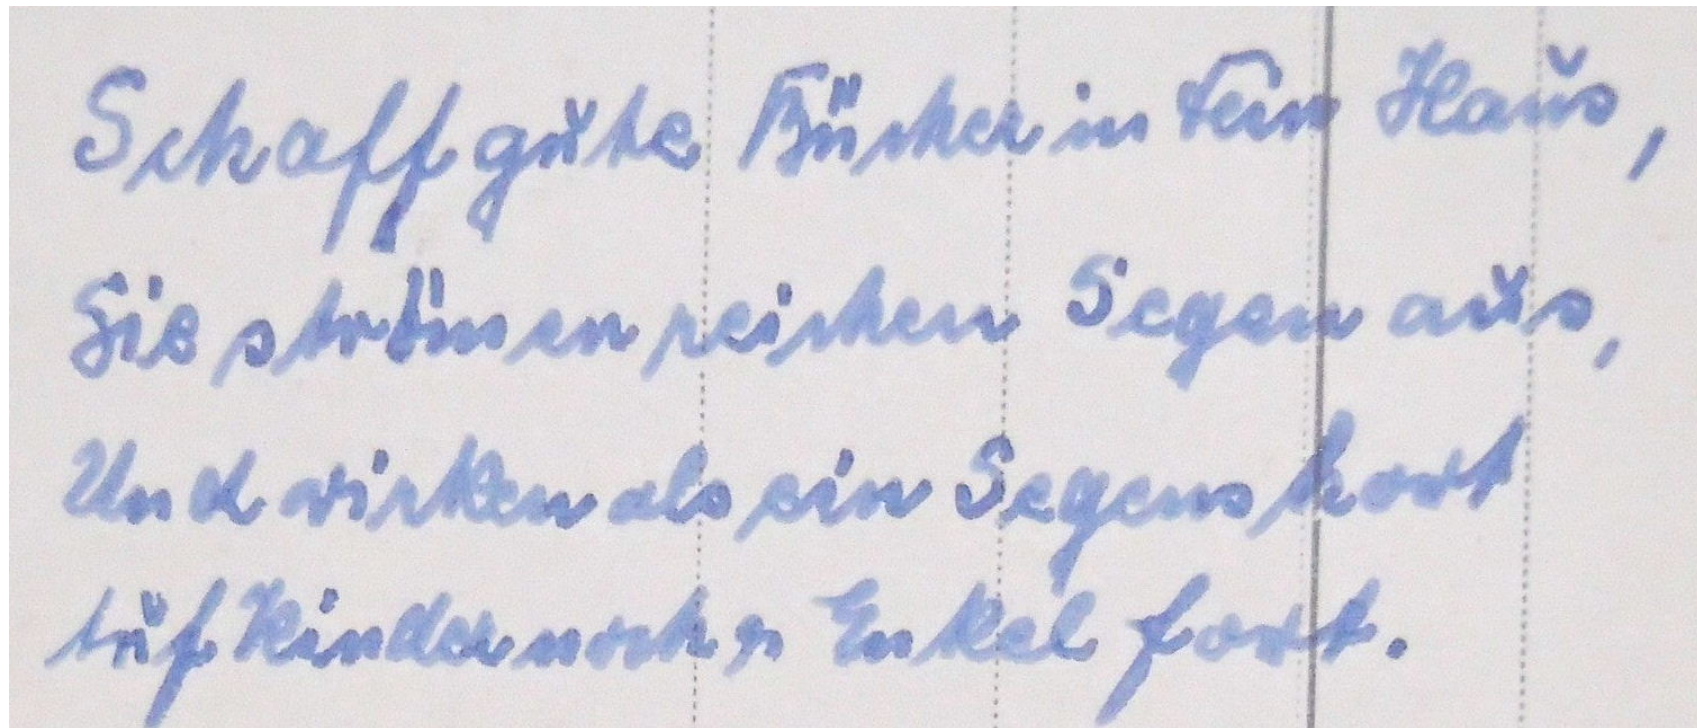 Schaff gute Bücher in Dein Haus,
Sie strömen reichen Segen aus,
Und wirken als ein Segenshort
Auf Kinder noch u Enkel fort.